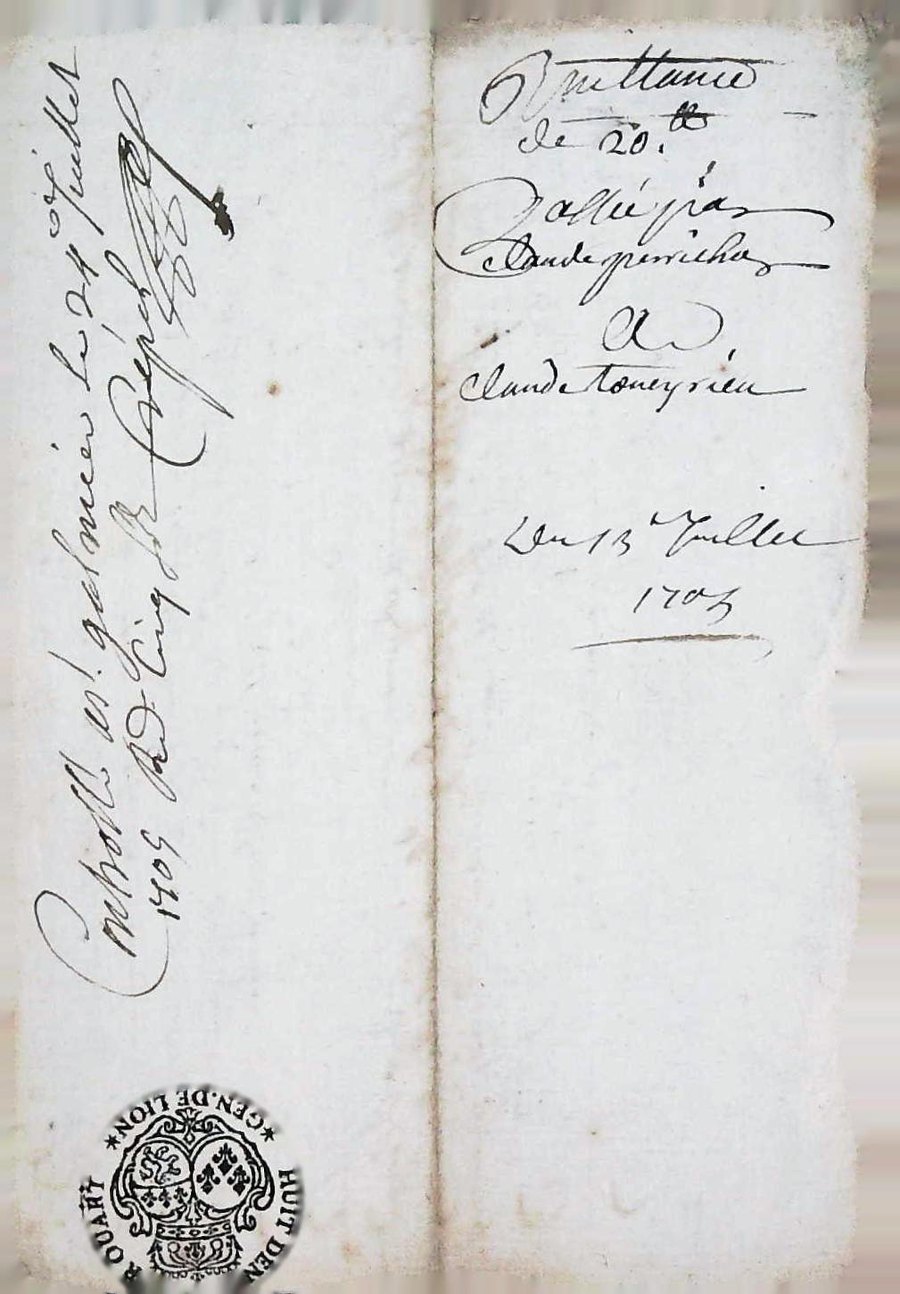 Quittance
de 20.tt
Passée par
Claude perrichon
A
Claude toneyrieu
Du 13e Juillet
1705
Controllé a st. galmier le 24e Juillet
1705 Red Cinq sols
*GEN. DE LION*
HUIT DEN
QUART